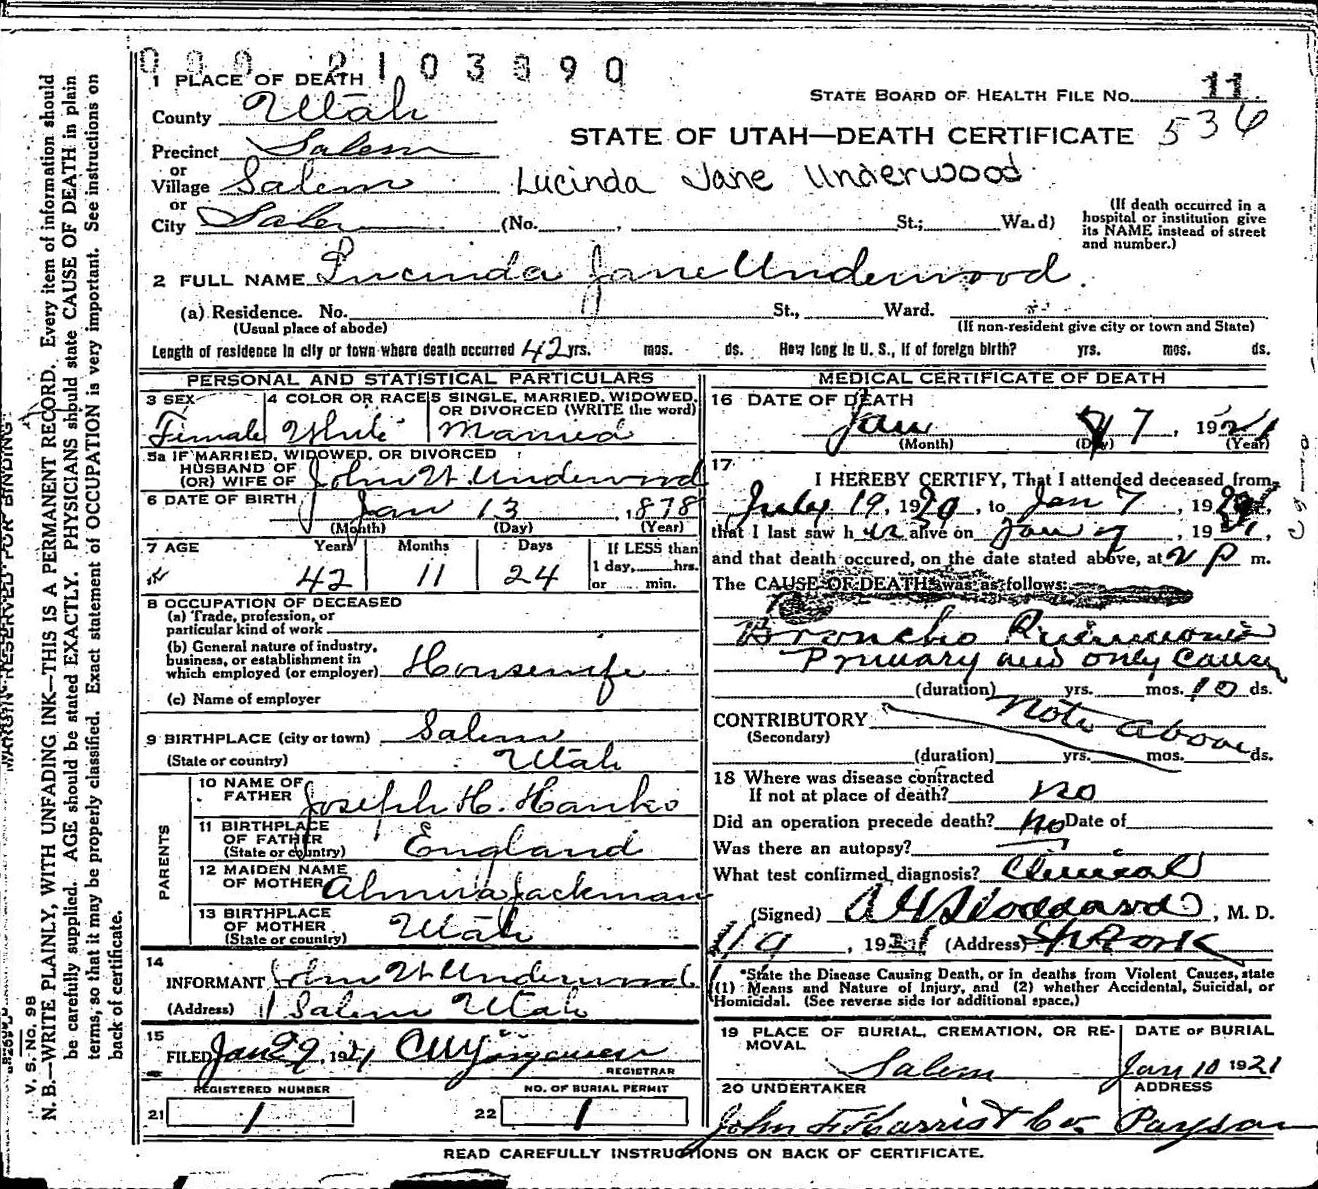 000 2103890
1 PLACE OF DEATH
County Utah
STATE BOARD OF HEALTH FILE NO. 11
STATE OF UTAH—DEATH CERTIFICATE 536
Precinct Salem
or
Village Salem Lucinda Jane Underwood
or
City Salem (No. , St.; Wa.d)
(If death occurred in a
hospital or institution give
its NAME instead of street
and number.)
2 FULL NAME Lucinda Jane Underwood.
(a) Residence. No. St., Ward.
(Usual place of abode) (If non-resident give city or town and State)
Length of residence in city or town where death occurred 42 yrs. mos. ds. How long in U. S., if of foreign birth? yrs. mos. ds.
PERSONAL AND STATISTICAL PARTICULARS
3 SEX 4 COLOR OR RACE 5 SINGLE, MARRIED, WIDOWED,
OR DIVORCED (WRITE the word)
Female White Married
5a IF MARRIED, WIDOWED, OR DIVORCED
HUSBAND OF
(OR) WIFE OF John W. Underwood
6 DATE OF BIRTH Jan 13, 1878
(Month) (Day) (Year)
7 AGE Years Months Days If LESS than
1 day, hrs.
42 11 24 or min.
8 OCCUPATION OF DECEASED
(a) Trade, profession, or
particular kind of work
(b) General nature of industry,
business, or establishment in
which employed (or employer) Housewife
(c) Name of employer
9 BIRTHPLACE (city or town) Salem
(State or country) Utah
PARENTS
10 NAME OF
FATHER Joseph H. Hanks
11 BIRTHPLACE
OF FATHER
(State or country) England
12 MAIDEN NAME
OF MOTHER Almira Jackman
13 BIRTHPLACE
OF MOTHER
(State or country) Utah
14
INFORMANT John W Underwood
(Address) Salem Utah
15
FILED Jan 29, 1921
REGISTRAR
REGISTERED NUMBER NO. OF BURIAL PERMIT
21 1 22 1
MEDICAL CERTIFICATE OF DEATH
16 DATE OF DEATH
Jan 7, 1921
(Month) (Day) (Year)
17
I HEREBY CERTIFY, That I attended deceased from
July 19, 1920, to Jan 7, 1921,
that I last saw her alive on Jan 7, 1921,
and that death occured, on the date stated above, at 2 P m.
The CAUSE OF DEATH was as follows:
Broncho Pneumonia
Primary and only cause
(duration) yrs. mos. 10 ds.
CONTRIBUTORY Note above
(Secondary)
(duration) yrs. mos. ds.
18 Where was disease contracted
If not at place of death? no
Did an operation precede death? no Date of
Was there an autopsy?
What test confirmed diagnosis? Clinical
(Signed) A H Stoddard, M. D.
1/9, 1921 (Address) Sp Fork
*State the Disease Causing Death, or in deaths from Violent Causes, state
(1) Means and Nature of Injury, and (2) whether Accidental, Suicidal, or
Homicidal. (See reverse side for additional space.)
19 PLACE OF BURIAL, CREMATION, OR RE- DATE OF BURIAL
MOVAL
Salem Jan 10 1921
20 UNDERTAKER ADDRESS
John F Harris & Co, Payson
READ CAREFULLY INSTRUCTIONS ON BACK OF CERTIFICATE.
MARGIN RESERVED FOR BINDING
V. S. No. 98
N. B.—WRITE PLAINLY, WITH UNFADING INK—THIS IS A PERMANENT RECORD. Every item of information should
be carefully supplied. AGE should be stated EXACTLY. PHYSICIANS should state CAUSE OF DEATH in plain
terms, so that it may be properly classified. Exact statement of OCCUPATION is very important. See instructions on
back of certificate.